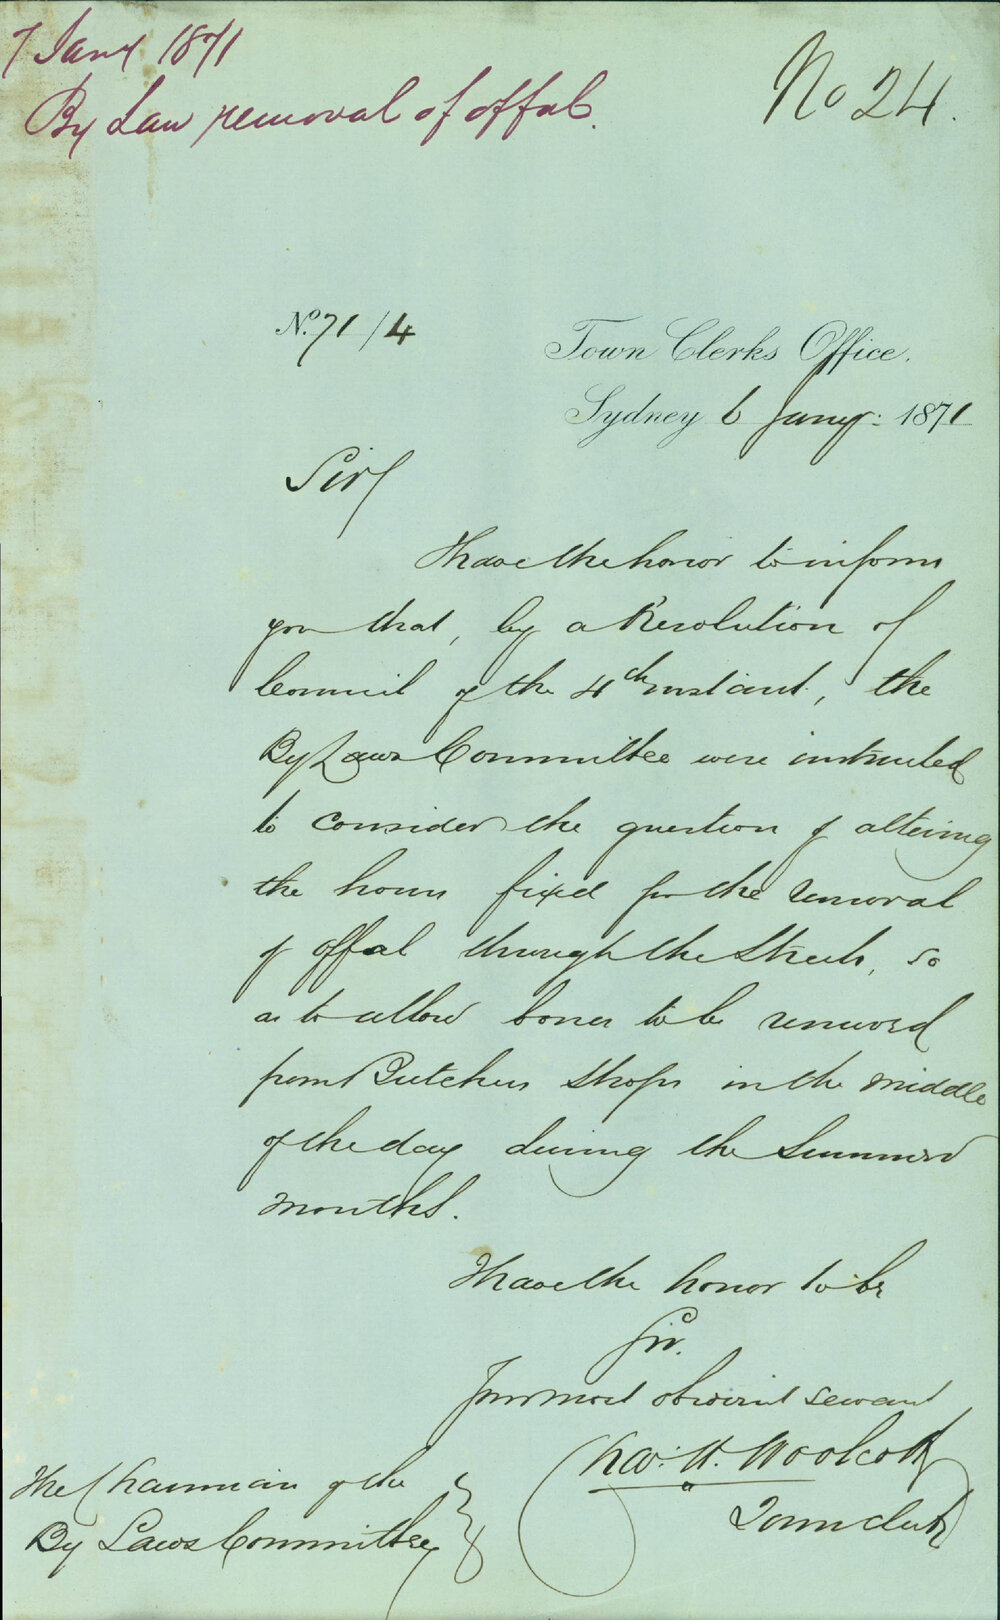 7 Jany 1871
By Law removal of offal.
No 24.
No. 71/4
Town Clerks Office.
Sydney 6 Jany: 1871
Sir/
I have the honor to inform
you that, by a Resolution of
Council of the 4th instant, the
By Laws Committee were instructed
to consider the question of altering
the hours fixed for the removal
of offal through the Streets, so
as to allow bones to be removed
from Butchers Shops in the middle
of the day during the Summer
months.
I have the honor to be
Sir.
Your most obedient servant
Chas. H. Woolcott
Town Clerk
The Chairman of the
By Laws Committee